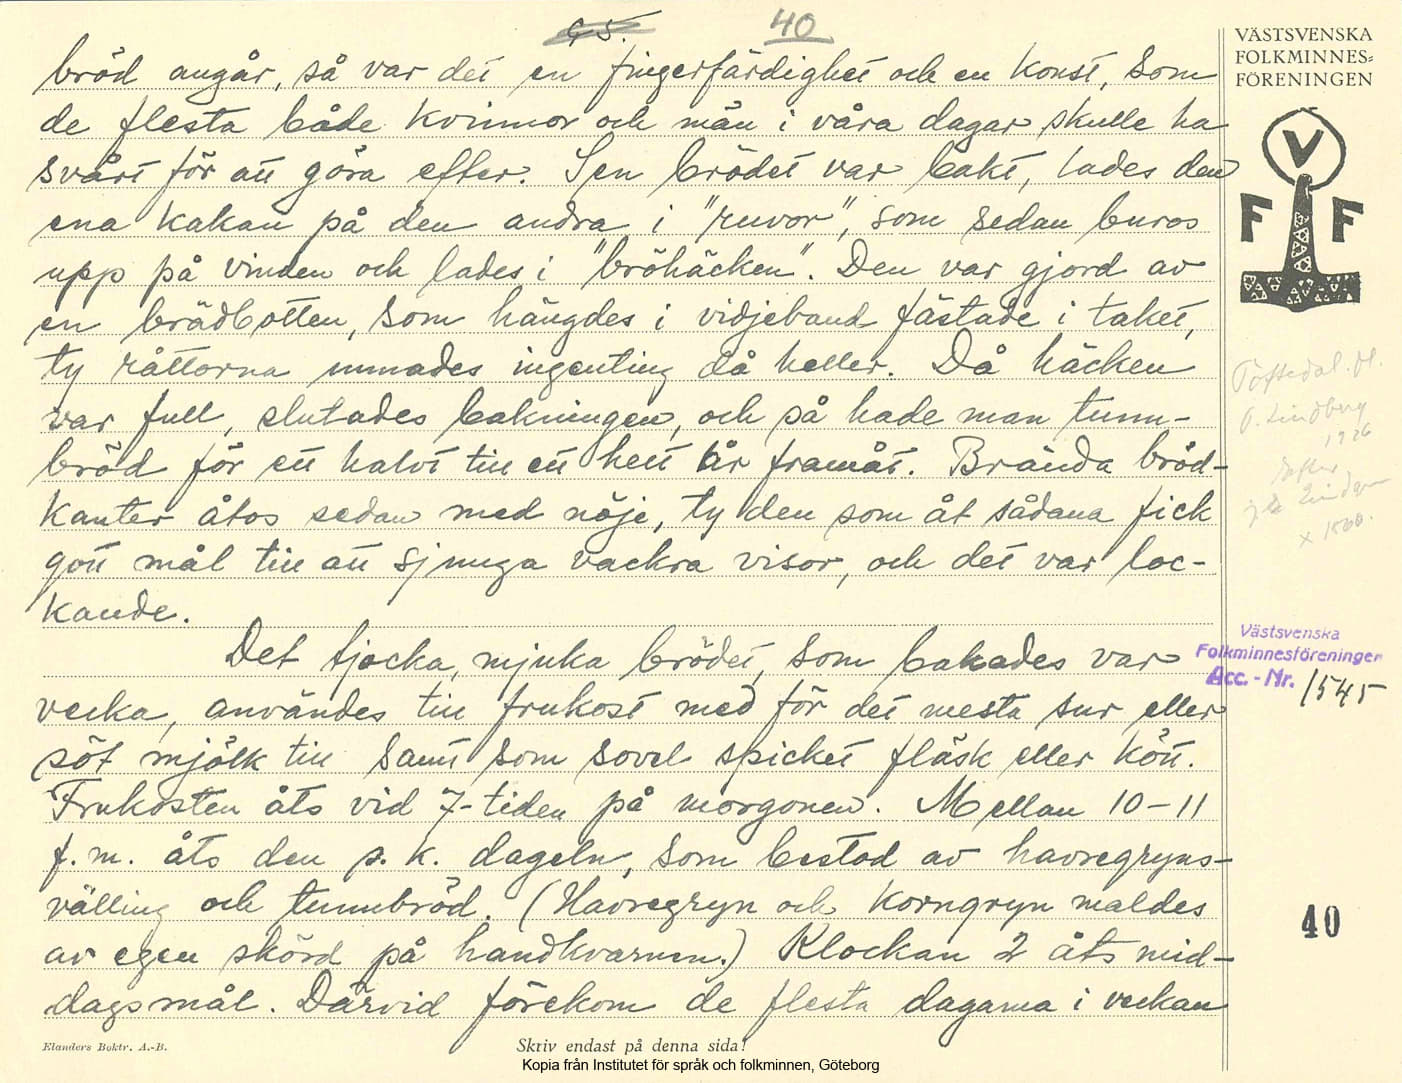 40
VÄSTSVENSKA
FOLKMINNES-
FÖRENINGEN
bröd angår, så var det en fingerfärdighet och en konst, som
de flesta både kvinnor och män i våra dagar skulle ha
svårt för att göra efter. Sen brödet var bakt, lades den
ena kakan på den andra i "ruvor", som sedan buros
upp på vinden och lades i "bröhäcken". Den var gjord av
en brädbotten, som hängdes i vidjeband fästade i taket,
ty råttorna unnades ingenting då heller. Då häcken
var full, slutades bakningen, och så hade man tunn-
bröd för ett halvt till ett helt år framåt. Brända bröd-
kanter åtos sedan med nöje, ty den som åt sådana fick
gott mål till att sjunga vackra visor, och det var loc-
kande.
Det tjocka, mjuka brödet, som bakades var
vecka, användes till frukost med för det mesta sur eller
söt mjölk till samt som sovel spicket fläsk eller kött.
Frukosten åts vid 7-tiden på morgonen. Mellan 10-11
f.m. åts den s.k. dageln, som bestod av havregryns-
välling och tunnbröd. (Havregryn och korngryn maldes
av egen skörd på handkvarnen.) Klockan 2 åts mid-
dagsmål. Därvid förekom de flesta dagarna i veckan
V
F F
Töftedal. Dl.
O. Lindberg
1926
Efter
Västsvenska
Folkminnesföreningen
Acc.-Nr. 1545
40
Elanders Boktr. A.-B.
Skriv endast på denna sida!
Kopia från Institutet för språk och folkminnen, Göteborg